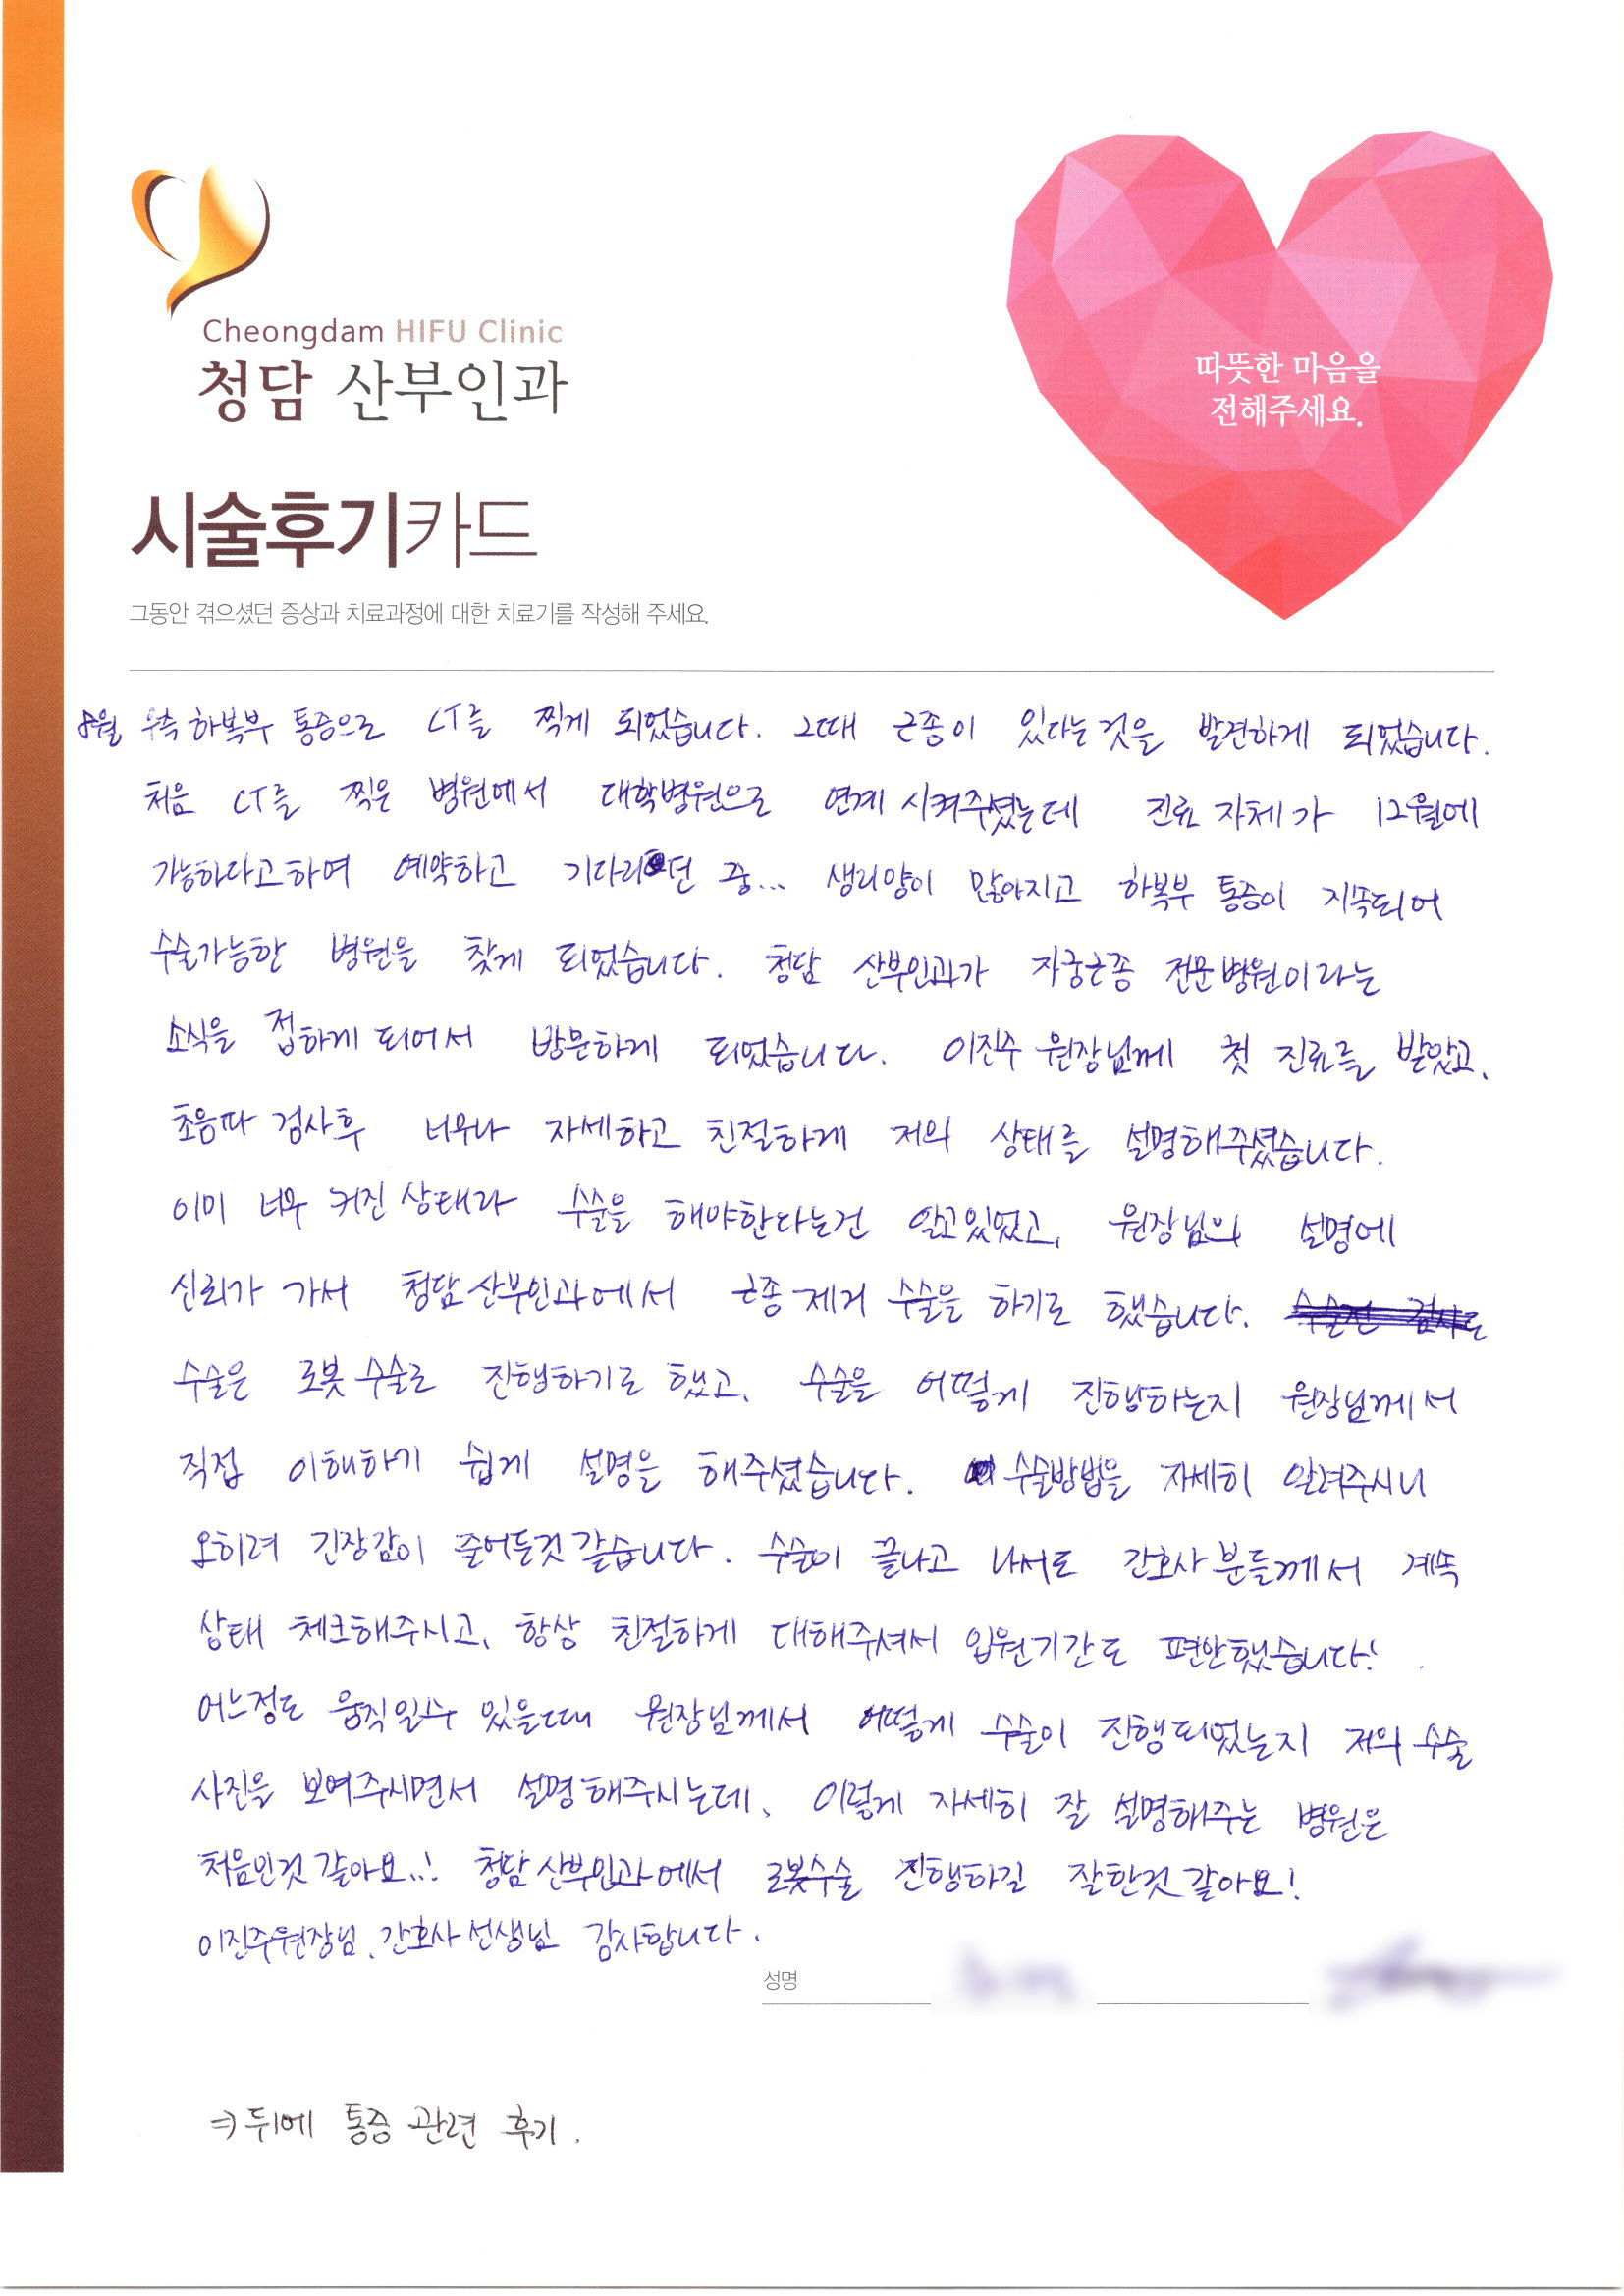 Cheongdam HIFU Clinic
청담 산부인과
따뜻한 마음을
전해주세요.
시술후기카드
그동안 겪으셨던 증상과 치료과정에 대한 치료기를 작성해 주세요.
8월 우측 하복부 통증으로 CT를 찍게 되었습니다. 그때 근종이 있다는것을 발견하게 되었습니다.
처음 CT를 찍은 병원에서 대학병원으로 연계 시켜주셨는데 진료 자체가 12월에
가능하다고하여 예약하고 기다리던 중... 생리양이 많아지고 하복부 통증이 지속되어
수술가능한 병원을 찾게 되었습니다. 청담 산부인과가 자궁근종 전문병원이라는
소식을 접하게 되어서 방문하게 되었습니다. 이진주 원장님께 첫 진료를 받았고,
초음파 검사후 너무나 자세하고 친절하게 저의 상태를 설명해주셨습니다.
이미 너무 커진 상태라 수술을 해야한다는건 알고있었고, 원장님의 설명에
신뢰가 가서 청담산부인과에서 근종 제거 수술을 하기로 했습니다.
수술은 로봇 수술로 진행하기로 했고, 수술을 어떻게 진행하는지 원장님께서
직접 이해하기 쉽게 설명을 해주셨습니다. 수술방법을 자세히 알려주시니
오히려 긴장감이 줄어든것 같습니다. 수술이 끝나고 나서도 간호사 분들께서 계속
상태 체크해주시고, 항상 친절하게 대해주셔서 입원기간도 편안했습니다!
어느정도 움직일수 있을때 원장님께서 어떻게 수술이 진행되었는지 저의 수술
사진을 보여주시면서 설명해주시는데, 이렇게 자세히 잘 설명해주는 병원은
처음인것 같아요..! 청담산부인과에서 로봇수술 진행하길 잘한것 같아요!
이진주원장님, 간호사 선생님 감사합니다.
성명
⇒ 뒤에 통증 관련 후기.